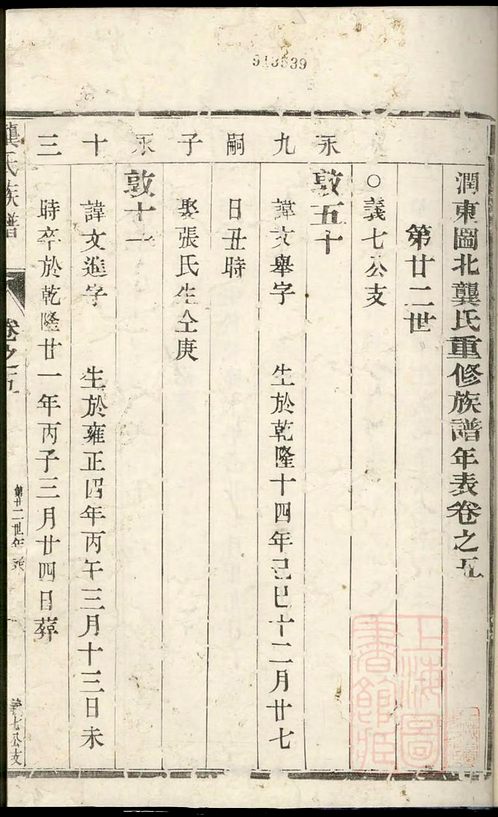 513539
潤東圖北龔氏重修族譜年表卷之五
第廿二世
○義七公支
敦五十
諱文舉字 生於乾隆十四年己巳十二月廿七
日丑時
娶張氏生仝庚
敦十一
諱文進字 生於雍正四年丙午三月十三日未
時卒於乾隆廿一年丙子三月廿四日葬
永九嗣子永十三
龔氏族譜
卷之五
第廿二世年表
義七公支
上海圖書館藏